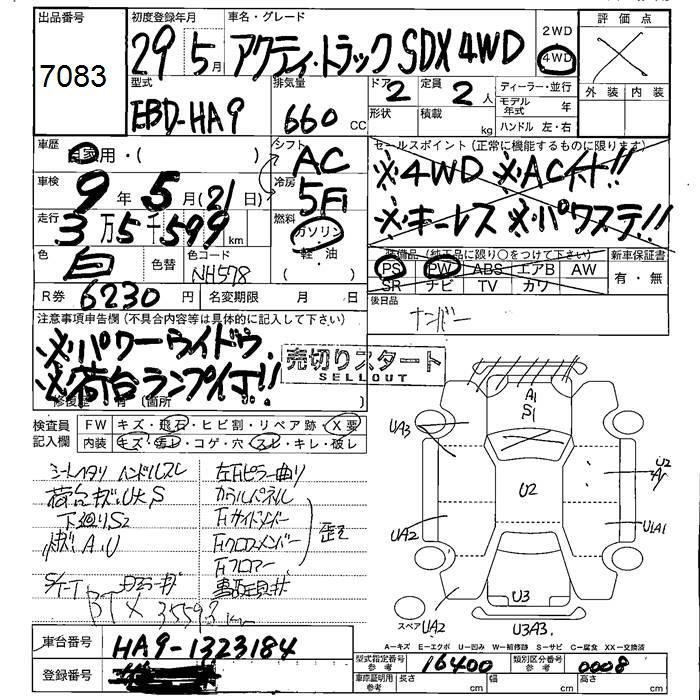 出品番号
7083
初度登録年月
29 5月
車名・グレード
アクティ・トラック SDX 4WD
2WD
4WD
評価点
外装 内装
型式
EBD-HA9
排気量
660 CC
ドア
2
定員
2人
形状
積載
kg
ディーラー・並行
モデル年式 年
ハンドル 左・右
車歴
自家用・( )
シフト
AC
冷房
5F1
車検
9年5月(21日)
走行
3万5千599km
燃料
ガソリン
・軽・油
色
白
色替
色コード
NH578
R券 6230円
名変期限 月 日
セールスポイント (正常に機能するものに限ります)
※4WD ※AC付!!
※キーレス ※パワステ!!
装備品 (純正品に限り○をつけて下さい)
PS PW ABS エアB AW
SR ナビ TV カワ
新車保証書
有・無
後日品
ナンバー
注意事項申告欄 (不具合内容等は具体的に記入して下さい)
※パワーウィドウ
※荷台ランプ付!!
修復歴 有 (箇所
売切りスタート
SELLOUT
検査員記入欄
FW キズ・飛石・ヒビ割・リペア跡・X要
内装 キズ・汚レ・コゲ・穴・スレ・キレ・破レ
シートヘタリ ハンドルスレ
荷台キズUKS
下廻りS2
A.U
左右ピラー曲り
カウルパネル
下サイドメンバー
下クロスメンバー
下フロアー
歪ミ
35593 Km
A1
S1
UA3
U2
U2
A1
UA2
U1A1
U3
スペア UA2
U3A3
A=キズ E=エクボ U=凹み W=補修跡 S=サビ C=腐食 XX=交換済
車台番号
HA9-1323184
登録番号
型式指定番号 参考
16400
類別区分番号 参考
0008
車庫証明用 参考
長さ cm
幅 cm
高さ cm